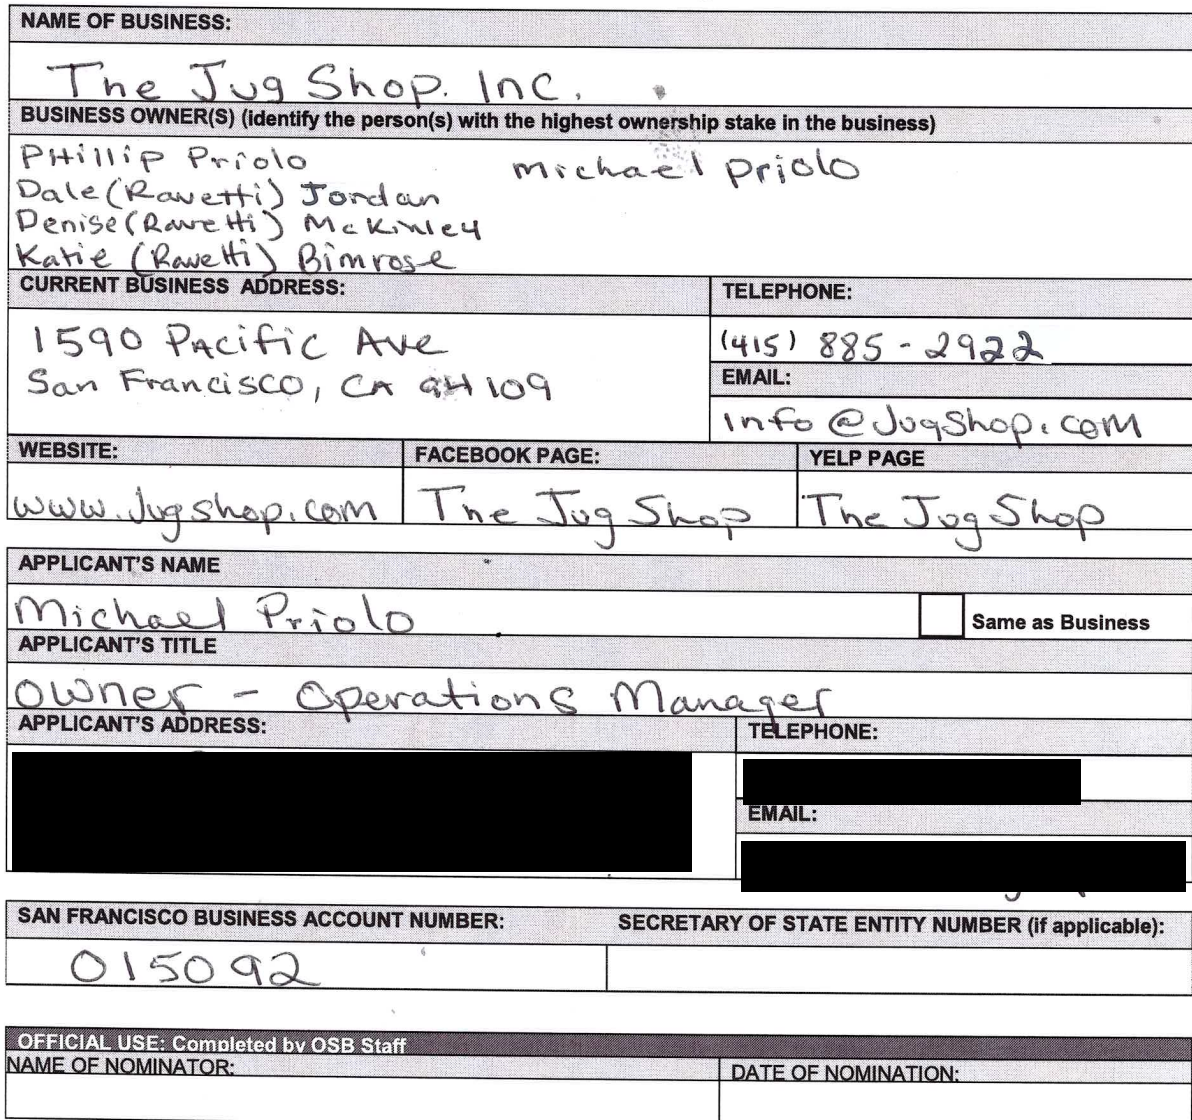 NAME OF BUSINESS:
The Jug Shop. Inc.
BUSINESS OWNER(S) (identify the person(s) with the highest ownership stake in the business)
PHillip Priolo Michael Priolo
Dale (Ravetti) Jordan
Denise (Ravetti) McKinley
Katie (Ravetti) Bimrose
CURRENT BUSINESS ADDRESS:
1590 Pacific Ave
San Francisco, CA 94109
TELEPHONE:
(415) 885-2922
EMAIL:
info@JugShop.com
WEBSITE: FACEBOOK PAGE: YELP PAGE
www.jugshop.com The Jug Shop The Jug Shop
APPLICANT'S NAME
Michael Priolo Same as Business
APPLICANT'S TITLE
Owner - Operations Manager
APPLICANT'S ADDRESS: TELEPHONE:
EMAIL:
SAN FRANCISCO BUSINESS ACCOUNT NUMBER: SECRETARY OF STATE ENTITY NUMBER (if applicable):
015092
OFFICIAL USE: Completed by OSB Staff
NAME OF NOMINATOR: DATE OF NOMINATION: